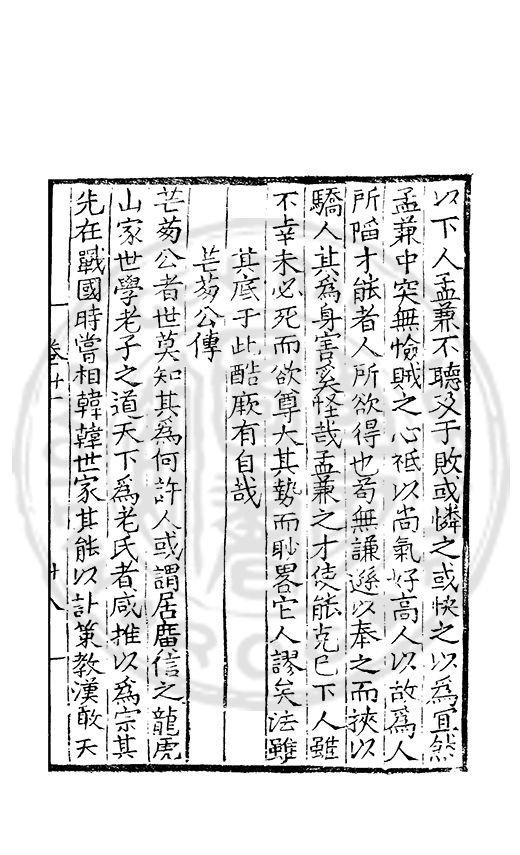 以下人孟兼不聽及于敗或憐之或快之以為宜然
孟兼中突無憸賊之心祗以尚氣好高人以故為人
所陷才能者人所欲得也苟無謙遜以奉之而挾以
驕人其為身害奚怪哉孟兼之才使能克己下人雖
不幸未必死而欲尊大其勢而眇畧它人謬矣法雖
其底于此酷厥有自哉
芒芴公傳
芒芴公者世莫知其為何許人或謂居廣信之龍虎
山家世學老子之道天下為老氏者咸推以為宗其
先在戰國時嘗相韓韓世家其能以計策教漢取天
卷廿一
十八